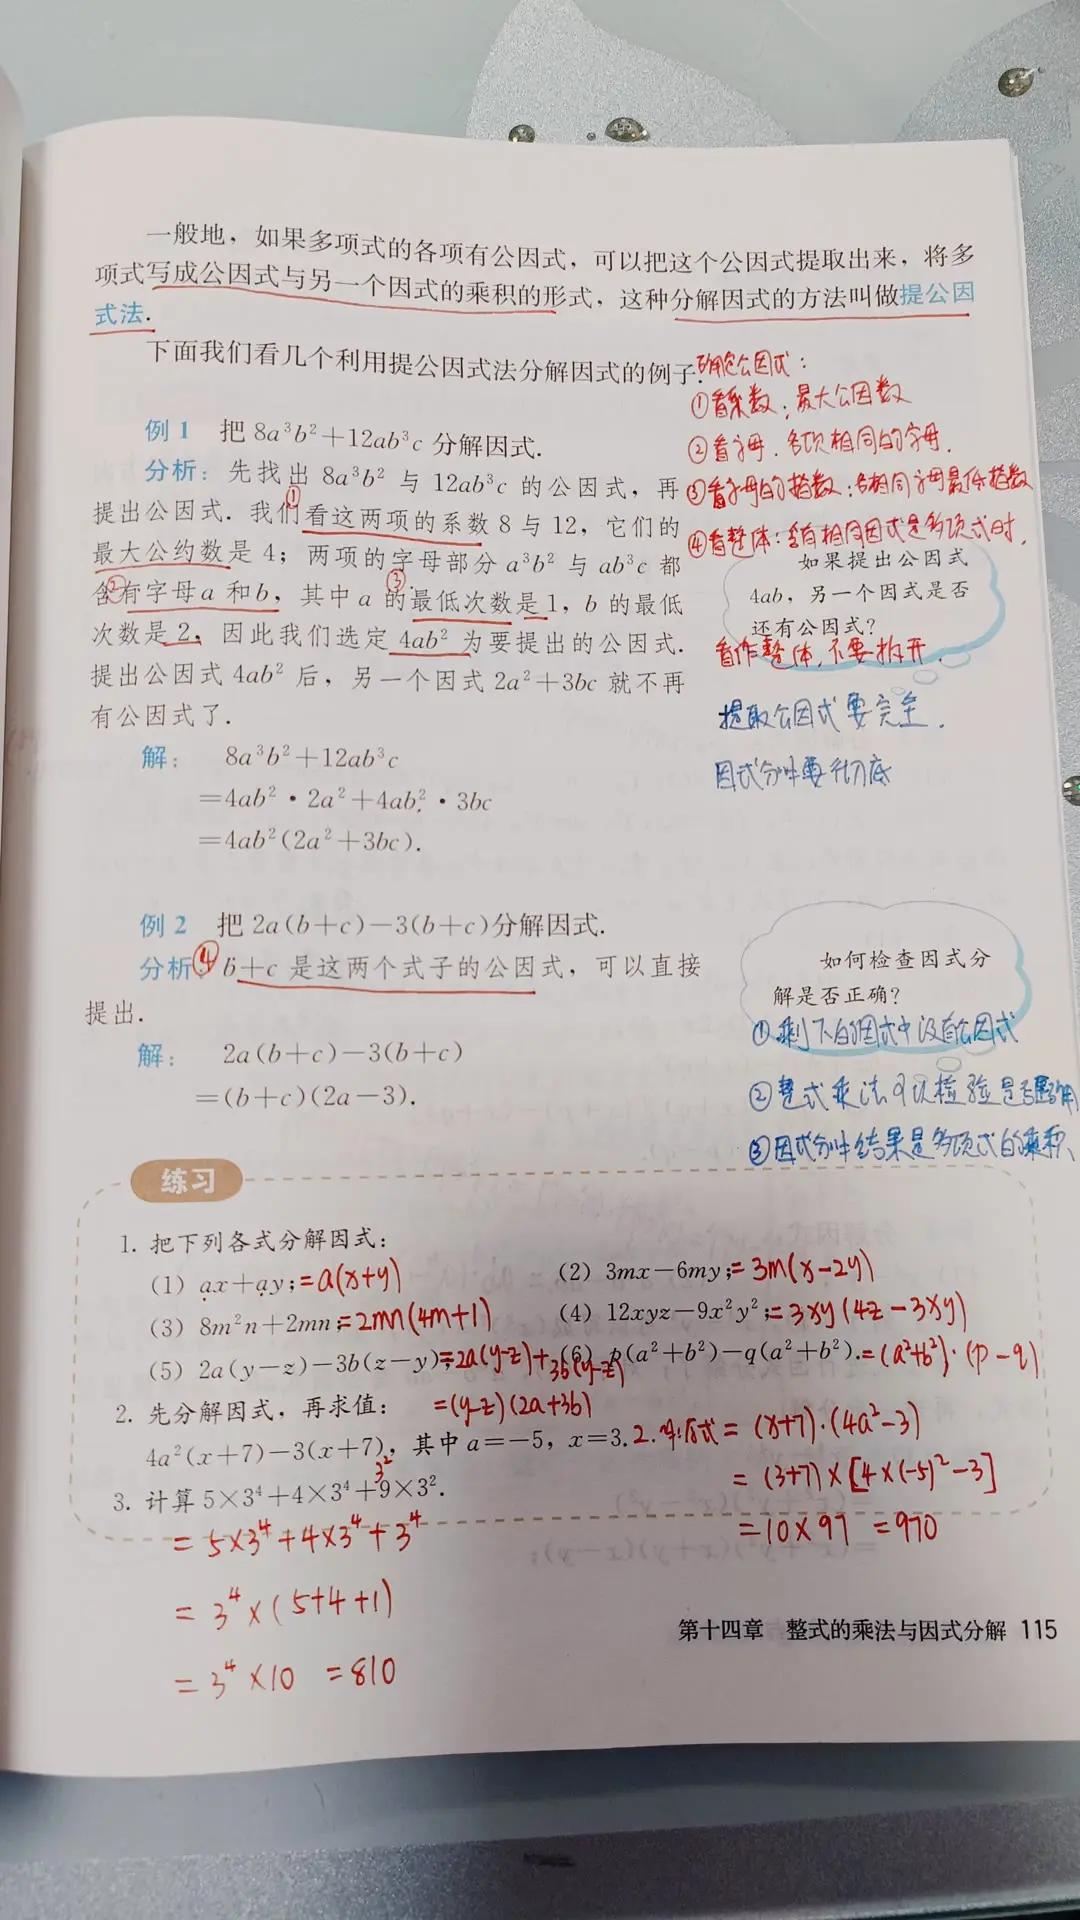 一般地，如果多项式的各项有公因式，可以把这个公因式提取出来，将多
项式写成公因式与另一个因式的乘积的形式，这种分解因式的方法叫做提公因
式法．
下面我们看几个利用提公因式法分解因式的例子．
确定公因式：
①看系数：最大公因数
②看字母．各项相同的字母．
③看字母的指数：各相同字母最低指数
④看整体：含有相同因式是多项式时．
例1 把 8a³b²＋12ab³c 分解因式．
分析：先找出 8a³b² 与 12ab³c 的公因式，再
提出公因式．我们看这两项的系数 8 与 12，它们的
最大公约数是 4；两项的字母部分 a³b² 与 ab³c 都
含有字母 a 和 b，其中 a 的最低次数是 1，b 的最低
次数是 2，因此我们选定 4ab² 为要提出的公因式．
提出公因式 4ab² 后，另一个因式 2a²＋3bc 就不再
有公因式了．
① ② ③
如果提出公因式
4ab，另一个因式是否
还有公因式？
看作整体，不要拆开．
提取公因式要完全．
因式分解要彻底
解： 8a³b²＋12ab³c
＝4ab²·2a²＋4ab²·3bc
＝4ab²(2a²＋3bc)．
例2 把 2a(b＋c)－3(b＋c)分解因式．
分析：④ b＋c 是这两个式子的公因式，可以直接
提出．
解： 2a(b＋c)－3(b＋c)
＝(b＋c)(2a－3)．
如何检查因式分
解是否正确？
①剩下的因式中没有公因式
②整式乘法可以检验是否正确
③因式分解结果是多项式的乘积
练习
1. 把下列各式分解因式：
(1) ax＋ay；=a(x+y) (2) 3mx－6my；=3m(x-2y)
(3) 8m²n＋2mn；=2mn(4m+1) (4) 12xyz－9x²y²；=3xy(4z-3xy)
(5) 2a(y－z)－3b(z－y)；=2a(y-z)+3b(y-z) (6) p(a²＋b²)－q(a²＋b²)．=(a²+b²)·(p-q)
=(y-z)(2a+3b)
2. 先分解因式，再求值：
4a²(x＋7)－3(x＋7)，其中 a＝－5，x＝3．
2.解：原式=(x+7)·(4a²-3)
=(3+7)×[4×(-5)²-3]
=10×97 =970
3. 计算 5×3⁴＋4×3⁴＋9×3²．
3²
=5×3⁴+4×3⁴+3⁴
=3⁴×(5+4+1)
=3⁴×10 =810
第十四章 整式的乘法与因式分解 115